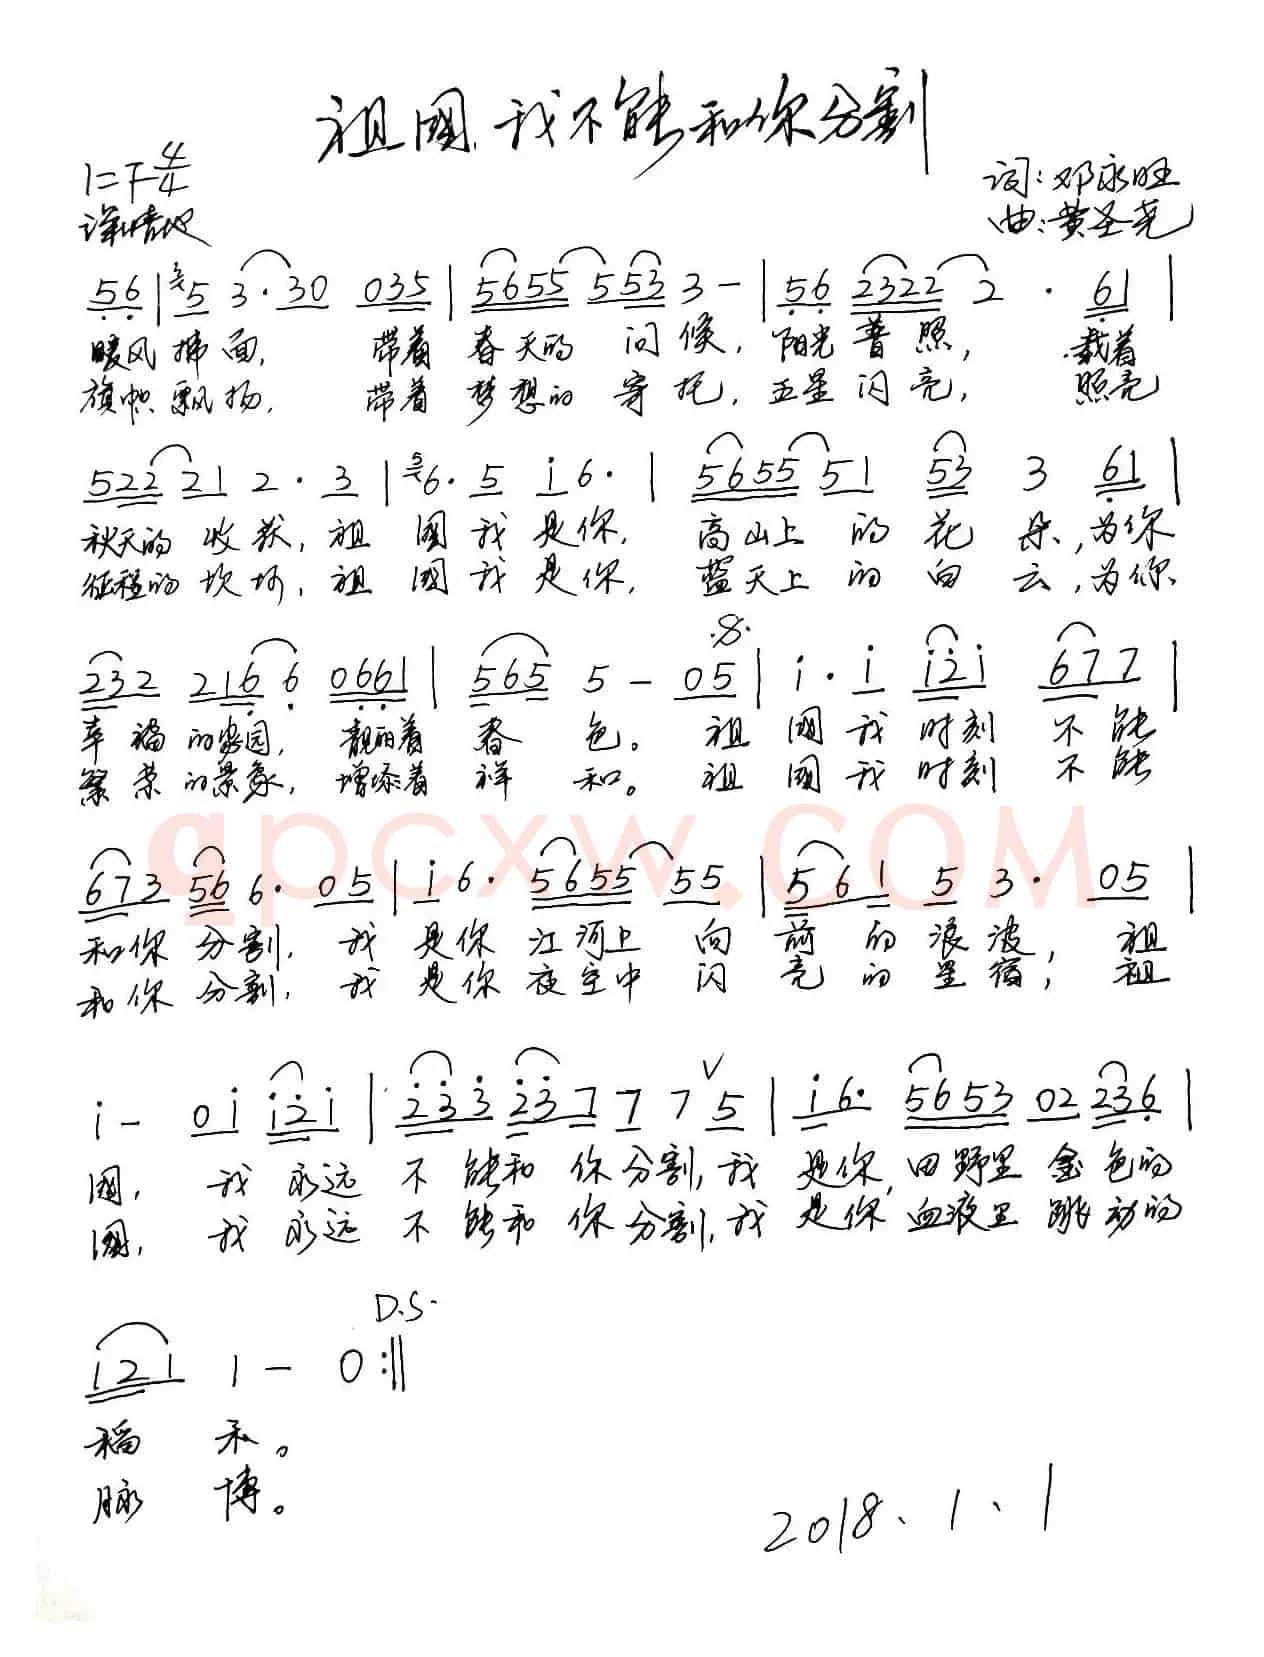 祖國,我不能和你分割
1=F 4/4
词:邓永旺
深情地
曲:黄圣尧
56 | 5 3·30 035 | 5655 553 3 - | 56 2322 2 · 61 |
暖风拂面, 带着 春天的 问候, 阳光普照, 载着
旗帜飘扬, 带着 梦想的 寄托, 五星闪亮, 照亮
522 21 2· 3 | 6· 5 i 6· | 5655 51 53 3 61 |
秋天的 收获, 祖 國我是你, 高山上 的 花 朵, 为你
征程的 坎坷, 祖 國我是你, 蓝天上 的 白 云, 为你
232 216 6 0661 | 565 5 - 05 | i · i i2i 677 |
幸福的家园, 靓丽着 春 色。 祖 國我时刻 不能
繁荣的景象, 增添着 祥 和。 祖 國我时刻 不能
673 56 6· 05 | i 6· 5655 55 | 5 6 1 5 3· 05 |
和你 分割, 我 是你 江河上 向 前 的 浪波, 祖
和你 分割, 我 是你 夜空中 闪 亮 的 星宿, 祖
i - 0i i2i | 233 237 7 7 5 | i 6· 5653 02 236 |
國, 我 永远 不 能和 你分割, 我 是你, 田野里 金色的
國, 我 永远 不 能和 你分割, 我 是你 血液里 跳动的
D.S.
i21 1 - 0 :||
稻 禾。
脉 搏。
2018、1、1
qpcxw.COM